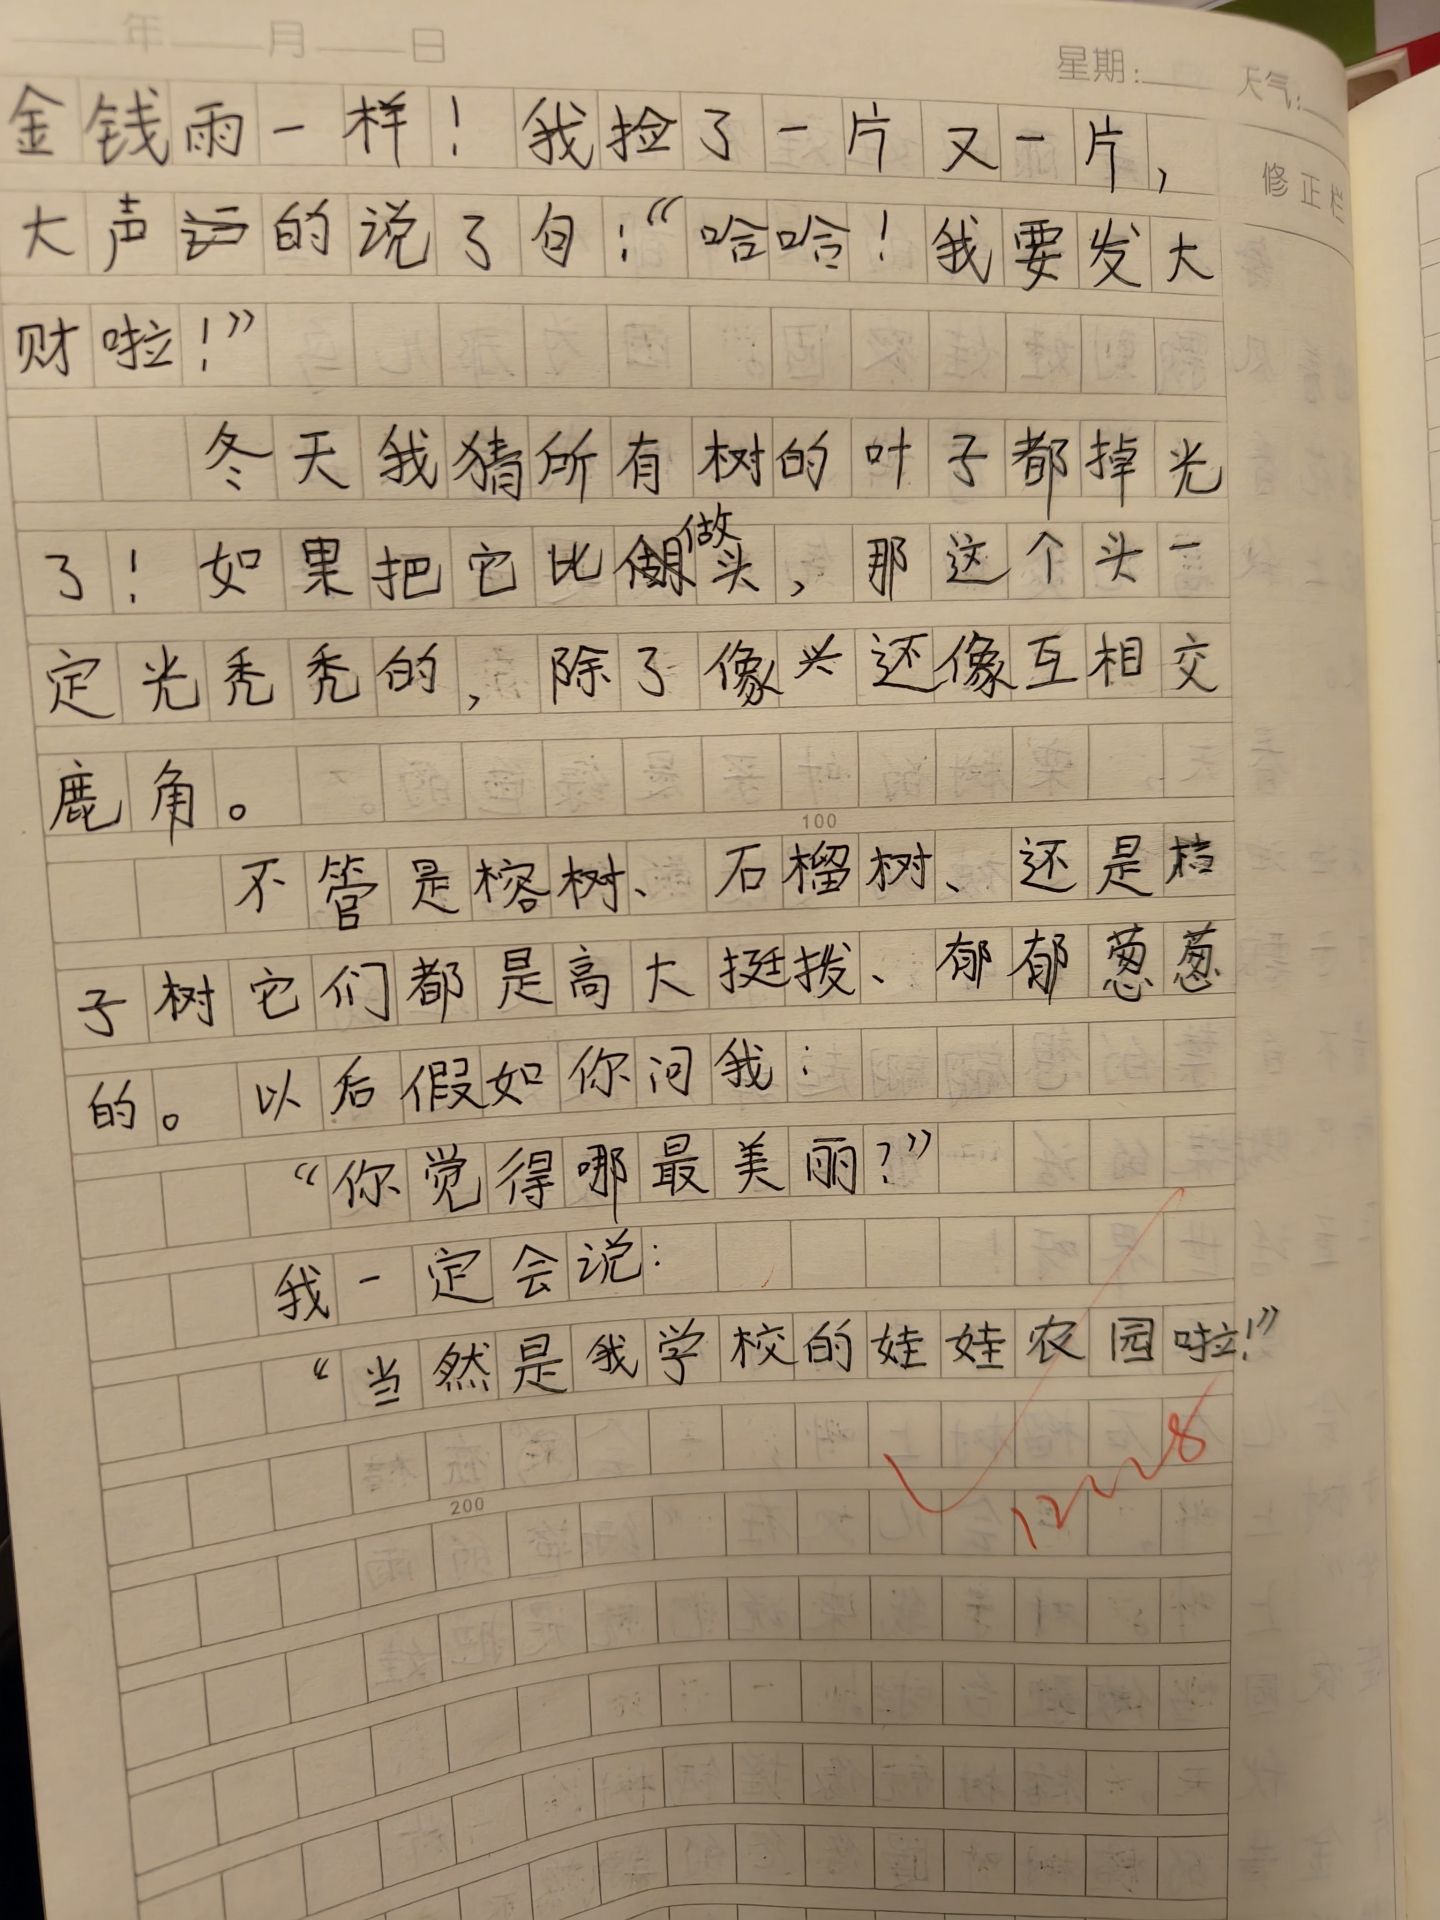 年 月 日
星期： 天气：
修正栏
金钱雨一样！我捡了一片又一片，
大声的说了句：“哈哈！我要发大
财啦！”
冬天我猜所有树的叶子都掉光
了！如果把它比做头，那这个头一
定光秃秃的，除了像头还像互相交
鹿角。
100
不管是榕树、石榴树、还是桔
子树它们都是高大挺拨、郁郁葱葱
的。以后假如你问我：
“你觉得哪最美丽？”
我一定会说：
“当然是我学校的娃娃农园啦！”
200